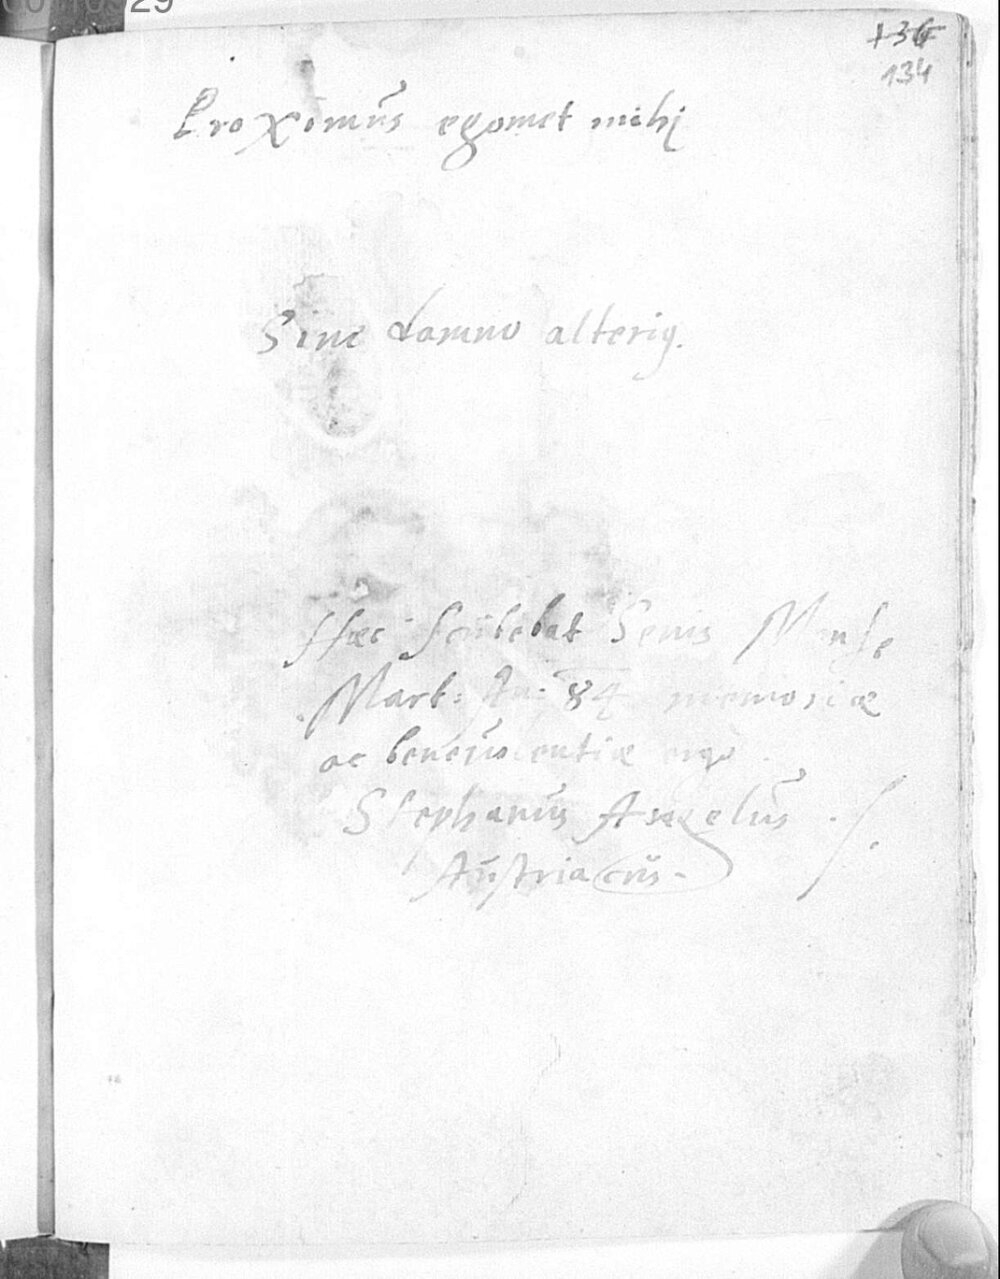 136
134
Proximus egomet mihj
Sine damno alterig.
Hæc scribebat Senis Mense
Mart: An: 84 memoriæ
ac beneuolentiæ ergo
Stephanus Angelus
Austriacus